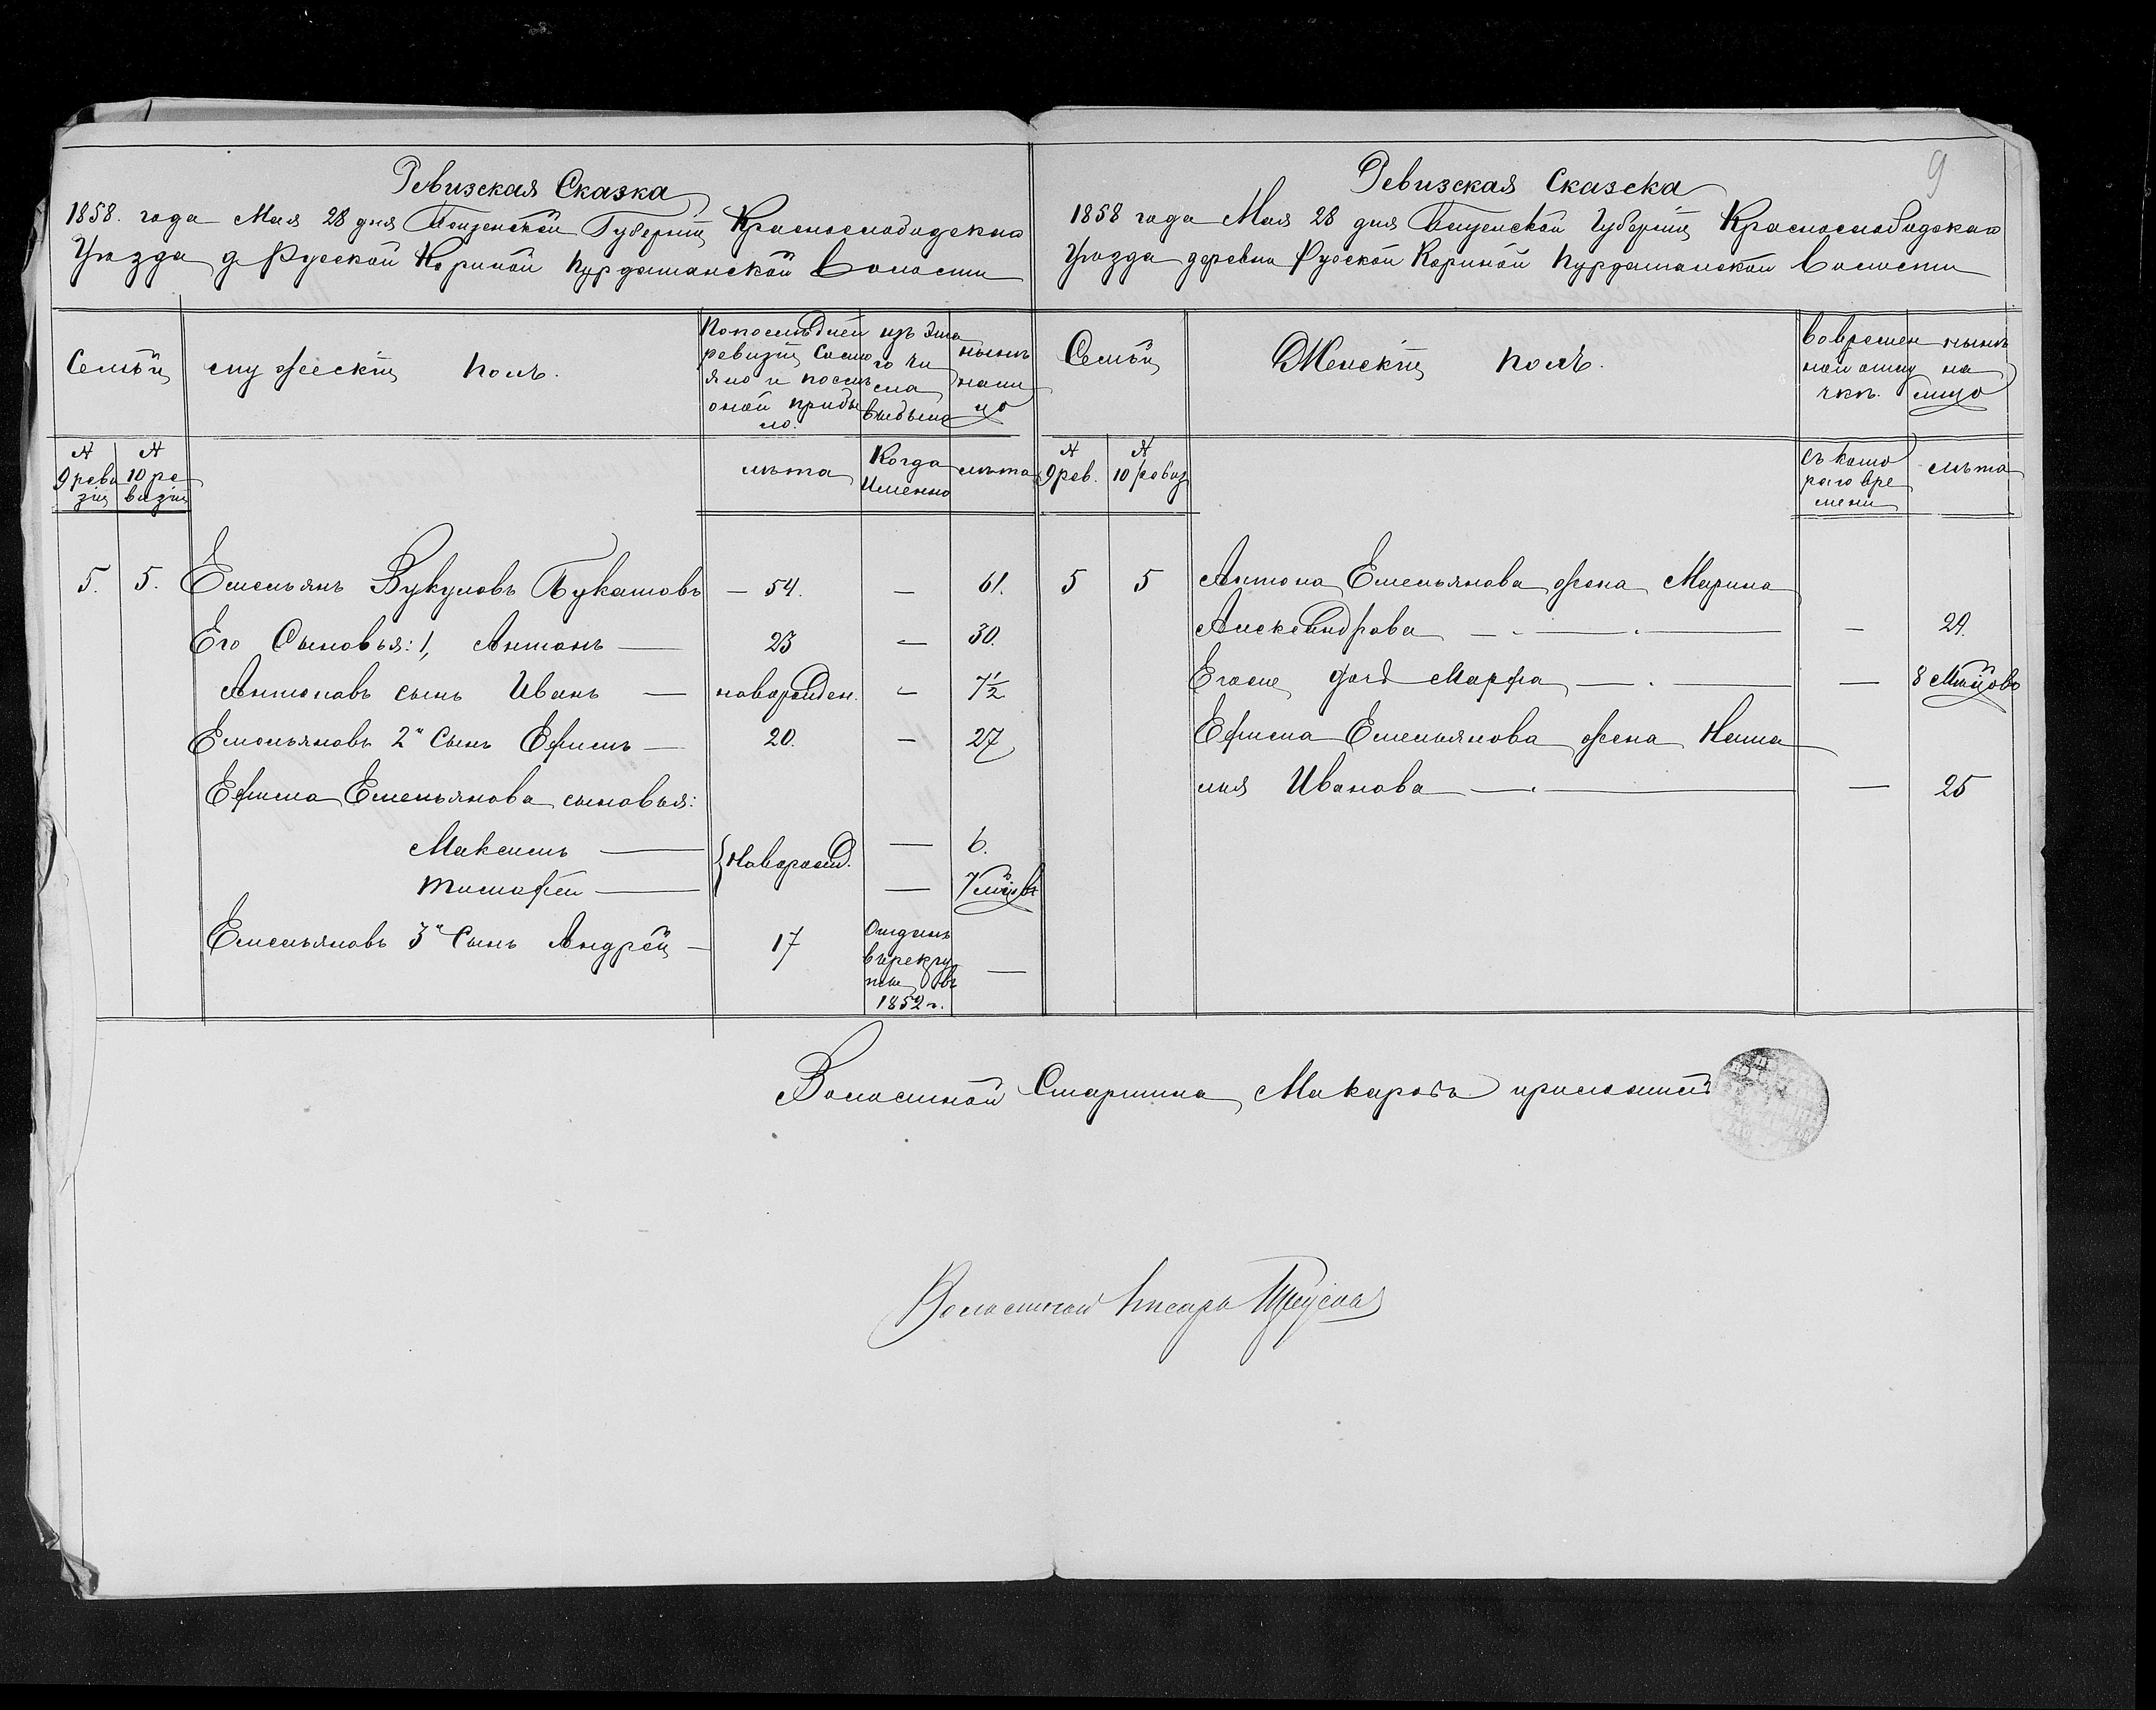 Ревизская Сказка
1858. года Мая 28 дня Пензенской Губернiи Краснослободскаго
Уезда д. Руской Кориной Пурдашанской Волости
Семьи
мужескiй полъ.
По последней
ревизiи состо
яло и после
оной прибы
ло.
изъ это
го чи
сла
выбыло
ныне
нали
цо
№
9 реви
зiи
№
10 ре
визiи
лета
Когда
Именно
лета
5. 5. Емельянъ Вукуловъ Букатовъ — 54. — 61.
Его Сыновья: 1, Антонъ — 23 — 30.
Антоновъ сынъ Иванъ — новорожден. — 7 1/2
Емельяновъ 2й Сынъ Ефимъ — 20. — 27
Ефима Емельянова сыновья:
Максимъ — {Новорожд. — 6.
Тимофей — — 7 м-цовъ
Емельяновъ 3й Сынъ Андрей — 17
Отданъ
въ рекру
ты въ
1852 г.
—
9
Ревизская Сказка
1858 года Мая 28 дня Пензенской Губернiи Краснослободскаго
Уезда деревни Руской Кориной Пурдашанской Волости
Семьи
Женскiй полъ.
во времен
ной отлу
чкѣ.
ныне
на
лицо
№
9 рев.
№
10 ревиз
съ кото
раго вре
мени
лета
5 5 Антона Емельянова жена Марина
Александрова — — 29.
Егоже дочь Марфа — — 8 м-цовъ
Ефима Емельянова жена Ната
лия Иванова — — 25
Волостной Старшина Макаровъ приложилъ
Волостной Писарь